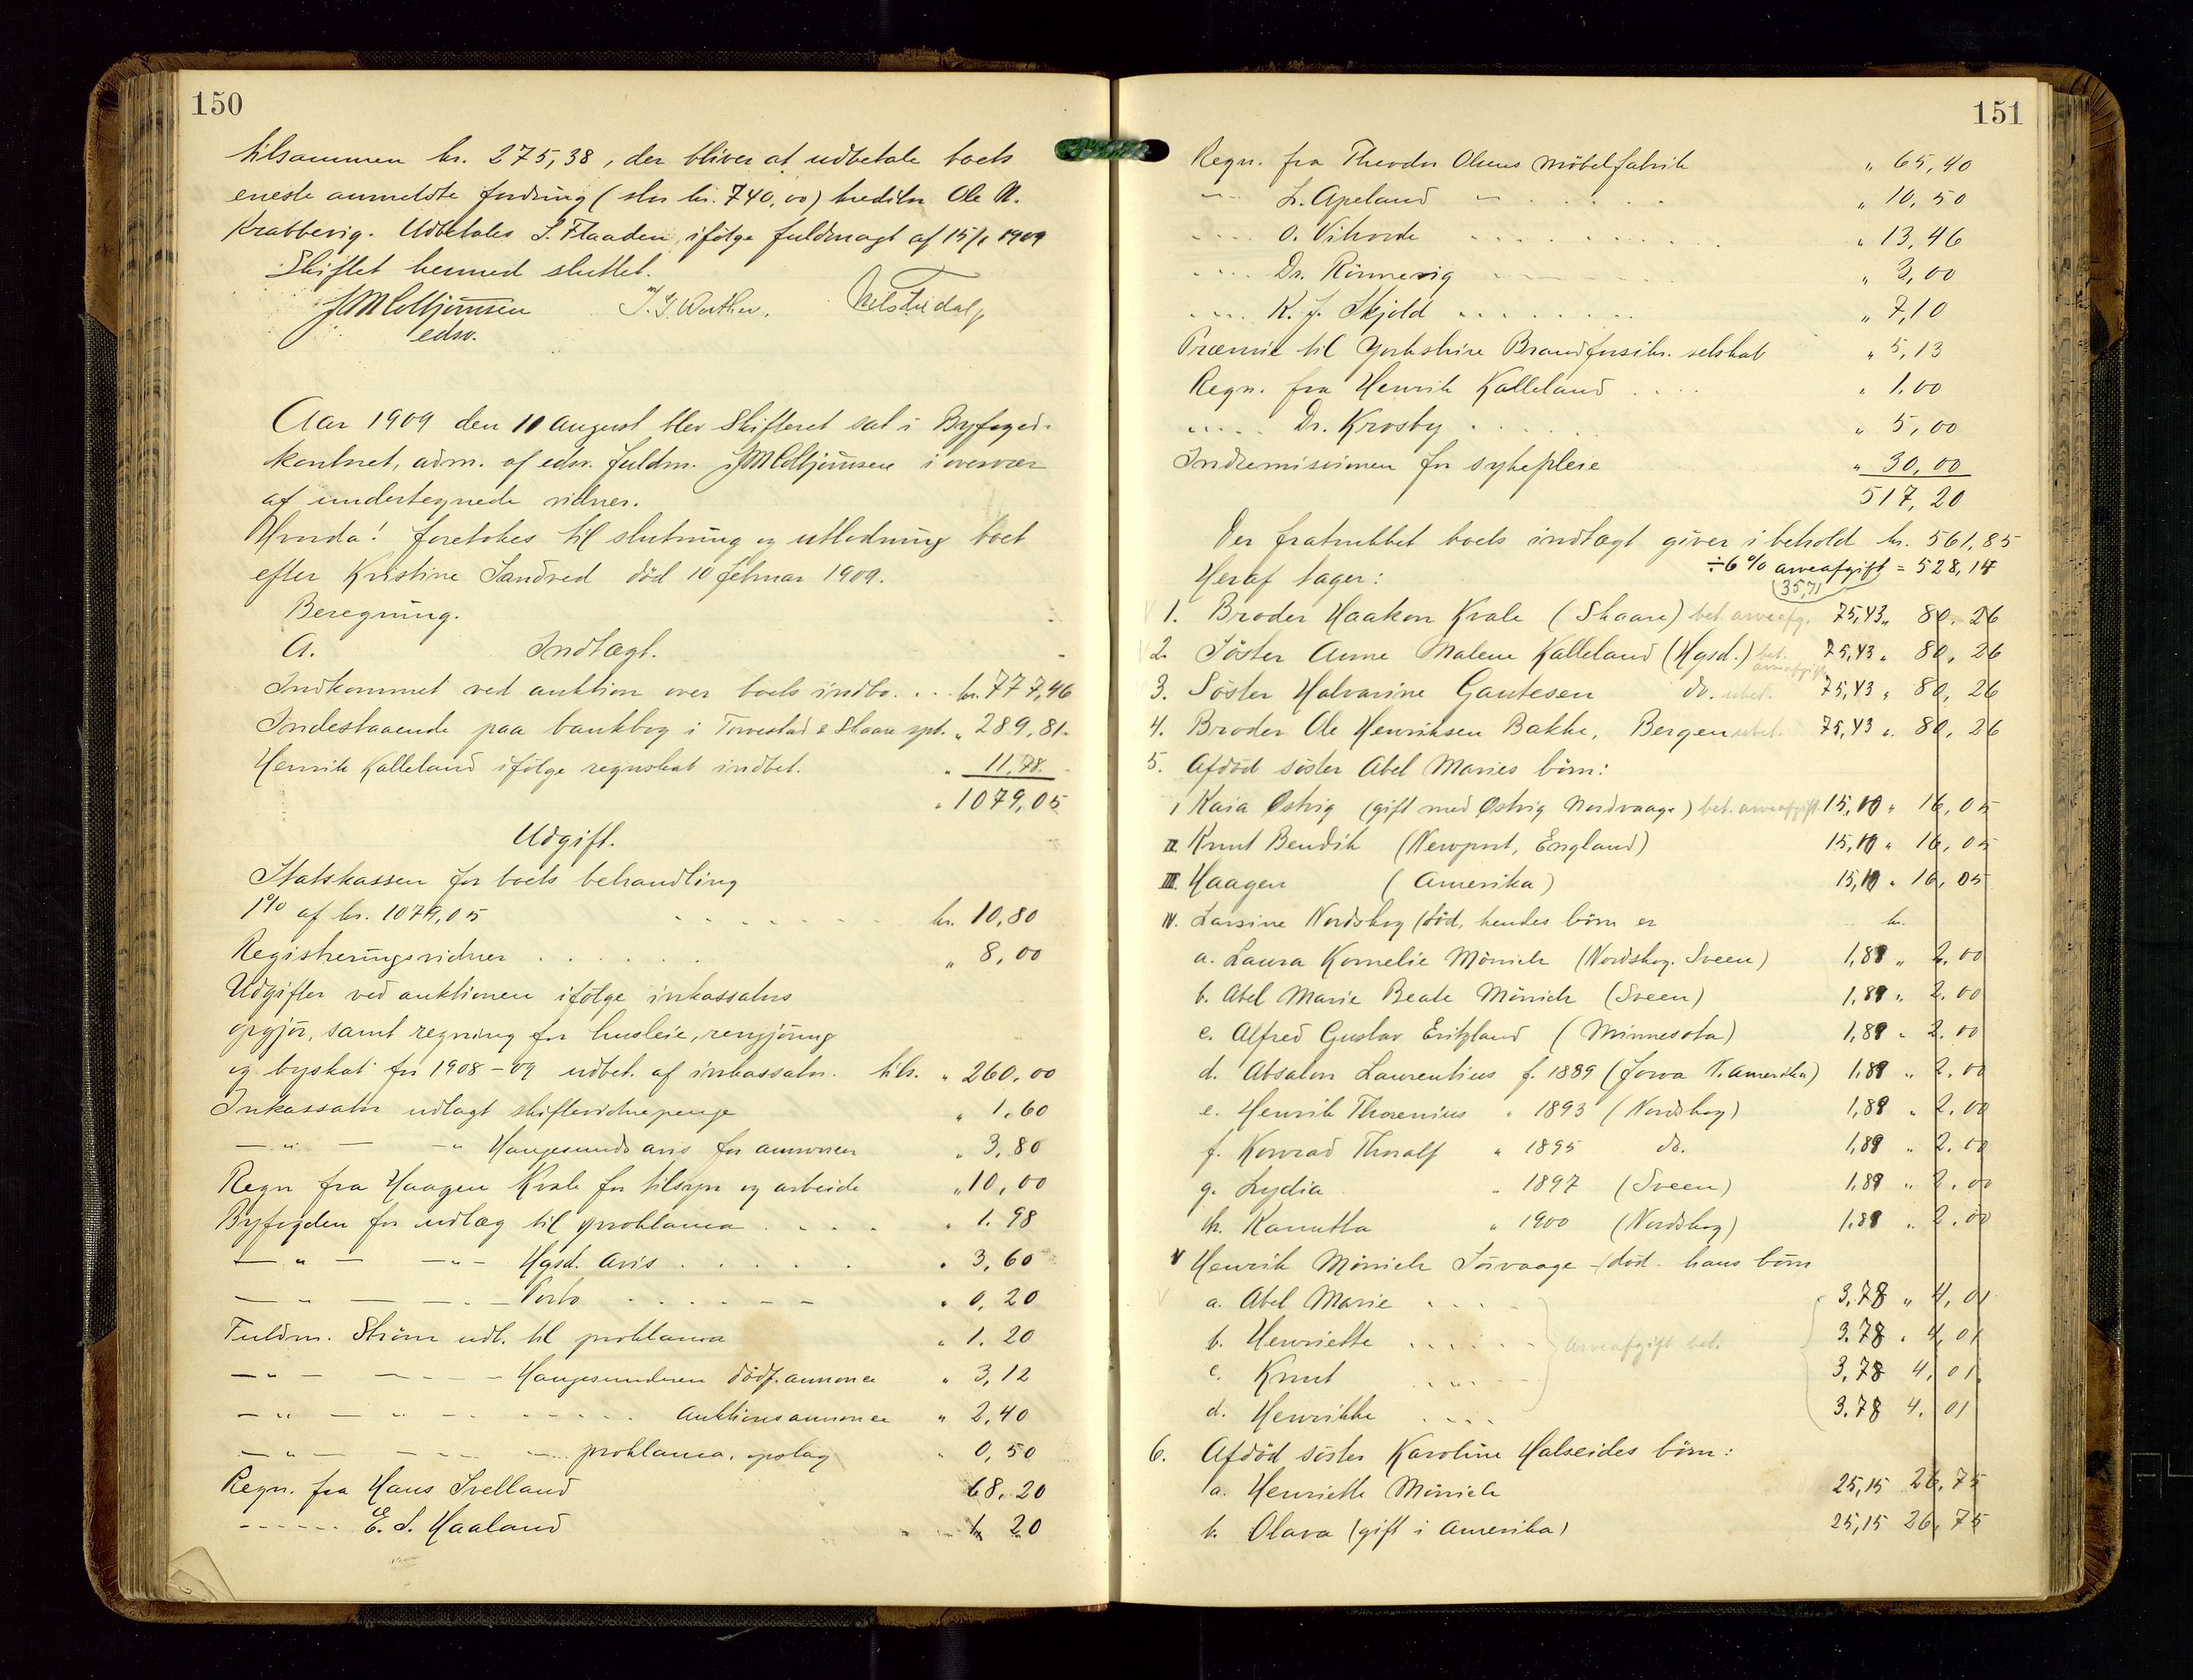 150
tilsammen kr. 275,38, der bliver at udbetale boets
eneste anmeldte fordring (stor kr. 740,00) kreditor Ole N.
Krabbevig. Udbetales S. Flaaden ifölge fuldmagt af 15/1 1909
Skiftet hermed sluttet.
edsv.
Aar 1909 den 10 august blev Skifteret sat i Byfoged-
kontoret, adm. af edsv. fuldm. i overvær
af undertegnede vidner.
Hvorda! foretokes til slutning og utlodning boet
efter Kristine Sandved död 10 februar 1909.
Beregning.
A. Indtægt.
Indkommet ved auktion over boets indbo . . . kr. 777,46
Indestaaende paa bankbog i Torvestad & Skaare spb. " 289,81.
Henrik Kalleland ifölge regnskab indbet. " 11,78.
" 1079,05
Udgift.
Statskassen for boets behandling
1% af kr. 1079,05 kr. 10,80
Registreringsvidner . . . . . . " 8,00
Udgifter ved auktionen ifölge inkassators
opgjör, samt regning for husleie, rengjöring
og byskat for 1908-09 udbet. af inkassator. tils. " 260,00
Inkassator udlagt skiftevidnepenge " 1,60
— " — — " Haugesunds avis for annoncer " 3,80
Regn fra Haagen Kvale for tilsyn og arbeide " 10,00
Byfogden for udlæg til proklama . . . . " 1.98
— " — — " — Hgsd. Avis . . . . . " 3,60
— — — — Porto . . . . . " 0,20
Fuldm. Ström udl. til proklama " 1.20
— " — — — — Haugesunderen dödf. annonce " 3,12
— " — " — . . . . Auktionsannoncer " 2,40
— " — — — — proklama. opslag " 0,50
Regn. fra Hans Svelland 68,20
- - - - - E. S. Haaland 1 20
151
Regn. fra Theodor Olsens Möbelfabrik " 65,40
— L. Apeland — . . . . . " 10,50
. . . . O. Vikvode . . . . . . " 13,46
. . . . Dr. Rönnevig . . . . " 3,00
. . . . K. J. Skjold . . . . . . " 7,10
Præmie til Yorkshire Brandforsikr. selskab " 5,13
Regn. fra Henrik Kalleland . . . " 1.00
. . . . . Dr. Krosby . . . . . " 5,00
Indremissionen for sykepleie " 30,00
517,20
Der fratrukket boets indtægt giver i behold kr. 561,85
÷ 6% arveafgift = 528,14
Heraf tager: (35,71)
1. Broder Haakon Kvale (Skaare) bet. arveafg. 75,43 " 80,26
2. Söster Anne Malene Kalleland (Hgsd.) bet. arveafgift 75,43 " 80,26
3. Söster Halvarine Gautesen do. ubet. 75,43 " 80,26
4. Broder Ole Henriksen Bakke, Bergen ubet. 75,43 " 80,26
5. Afdöd söster Abel Maries börn:
I Kaia Østvig (gift med Østvig Nordvaage) bet. arveafgift 15,10 " 16,05
II. Knut Bendik (Newport, England) 15,10 " 16,05
III. Haagen (Amerika) 15,10 " 16,05
IV. Larsine Nordskog (död, hendes börn er kr.
a. Laura Kornelie Mönick (Nordskog. Sveen) 1,88 " 2.00
b. Abel Marie Beate Mönick (Sveen) 1,88 " 2.00
c. Alfred Gustav Eritzland (Minnesota) 1,88 " 2.00
d. Absalon Laurentius f. 1889 (Jowa N. Amerika) 1.88 " 2.00
e. Henrik Thorenius " 1893 (Nordskog) 1,88 " 2.00
f. Konrad Thoralf " 1895 do. 1,88 " 2.00
g. Lydia " 1897 (Sveen) 1,88 " 2.00
h. Kanutta " 1900 (Nordskog) 1.88 " 2.00
V Henrik Mönick Sörvaage - död - hans börn
a. Abel Marie . . . . 3,78 " 4,01
b. Henriette . . . . . arveafgift bet. 3.78 " 4,01
c. Knut . . . . 3,78 4,01
d. Henrikke . . . . 3.78 4.01
6. Afdöd söster Karoline Halseides börn:
a. Henriette Mönick 25,15 26,75
b. Olava (gift i Amerika) 25,15 26,75